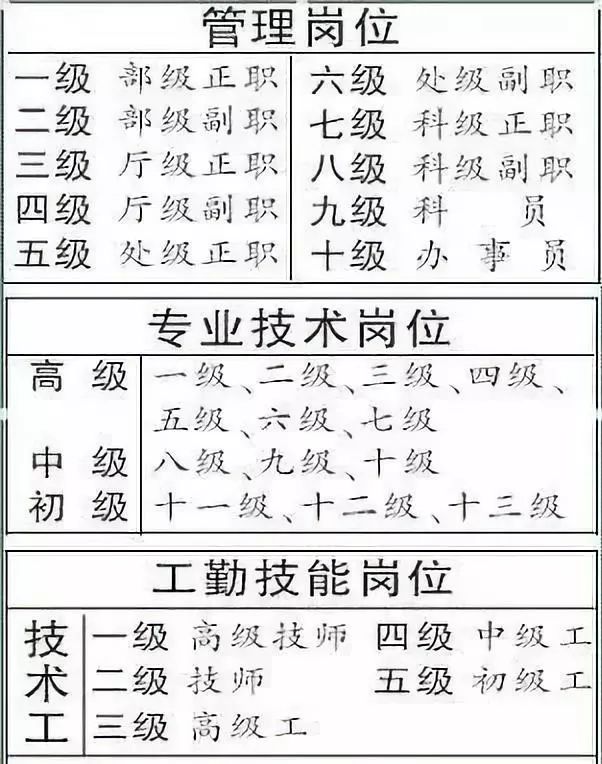 管理岗位
一级 部级正职
二级 部级副职
三级 厅级正职
四级 厅级副职
五级 处级正职
六级 处级副职
七级 科级正职
八级 科级副职
九级 科 员
十级 办事员
专业技术岗位
高级 一级、二级、三级、四级、
五级、六级、七级
中级 八级、九级、十级
初级 十一级、十二级、十三级
工勤技能岗位
技术工
一级 高级技师
二级 技师
三级 高级工
四级 中级工
五级 初级工